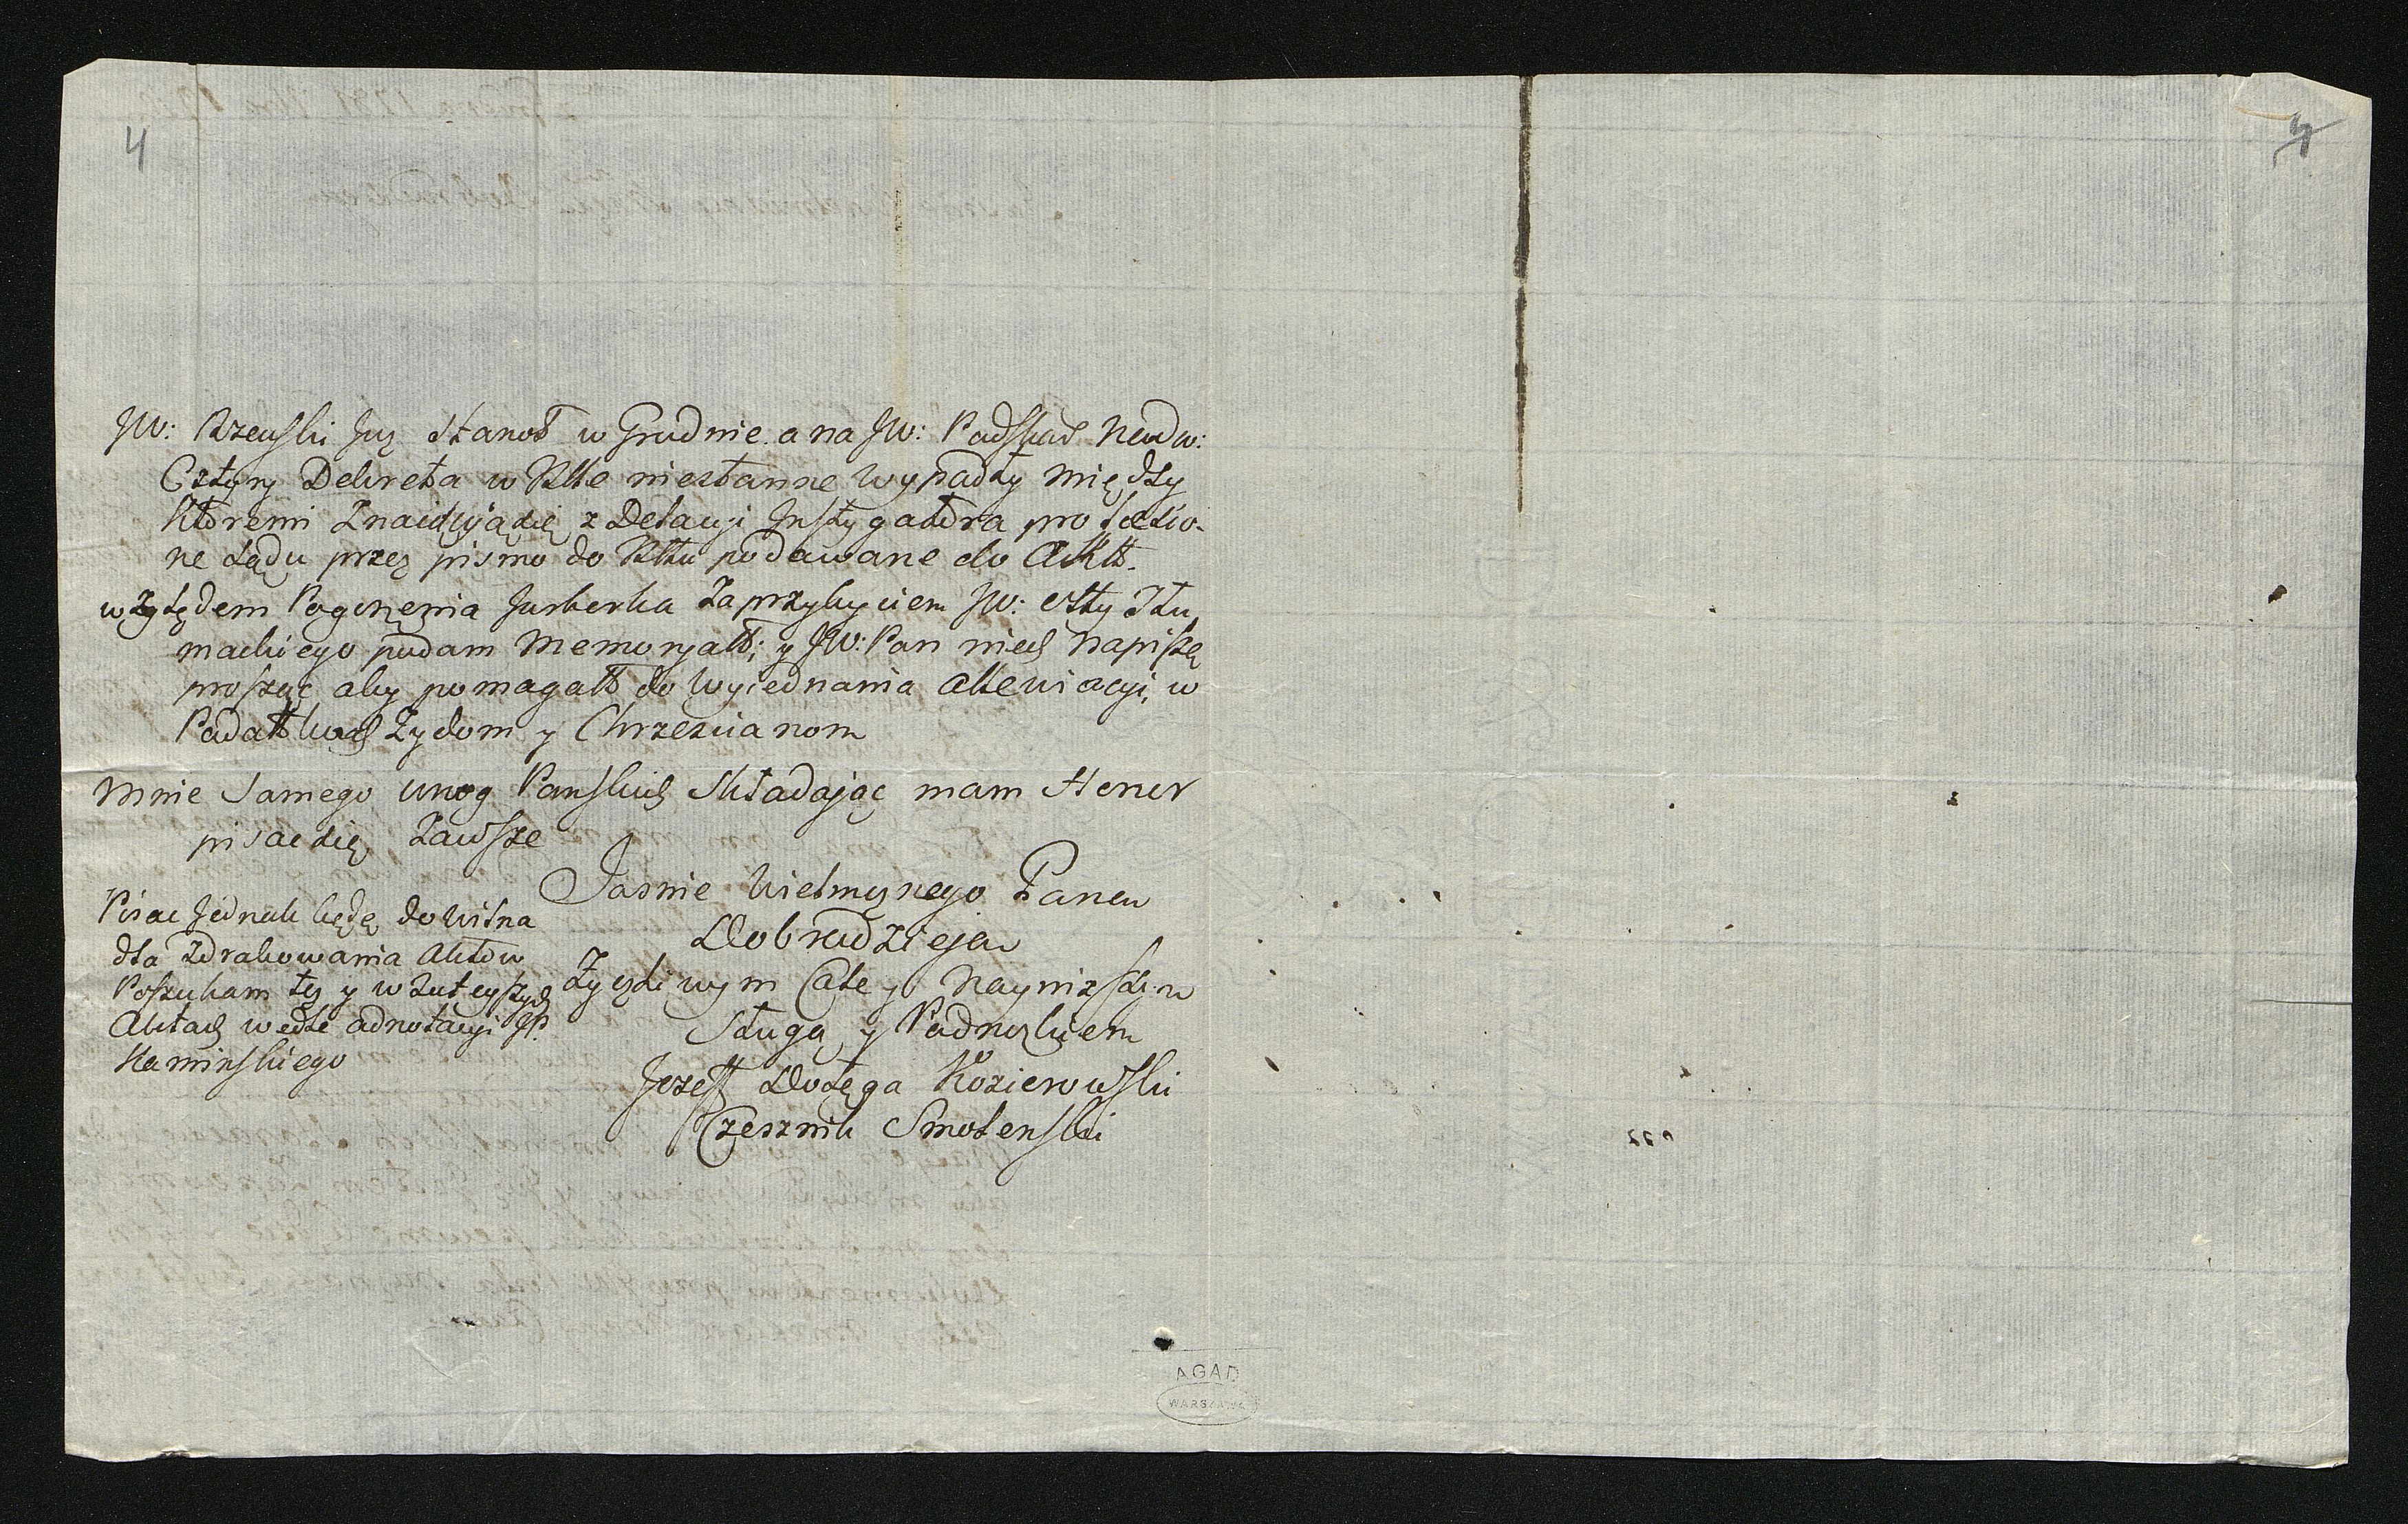 4
4
JW: Rzewski Juz stanoł w Grodnie a na JW: Podskar Nadw:
Cztyry Dekreta w Rtte niestanne wypadły między
Ktoremi Znaidują się z Delacyi Jnstygatora pro
ne sądu przez pismo do Rttu podawane do Akt.
względem Pogorzenia Jurborka Za przybyciem JW:
mackiego podam Memoryałł; y JW: Pan niech Napisze
prosząc aby pomagałł do Wyiednania Allewiacyi w
Podatkach Zydom y Chrzescianom
Mnie Samego unog Panskich składając mam Honor
pisac się Zawsze
Jasnie Wielmoznego Pana
Dobrodzieja
Zyczliwym Cale y Nayniższym
Sługą y Podnozkiem
Jozeff Dołęga Kozierowski
Czesznik Smolenski
Pisac Jednak będę do Wilna
dla Aktow
Poszukam tez y w Tuteyszych
Aktach wedle adnotacyi JP.
Kaminskiego
AGAD
WARSZAWA